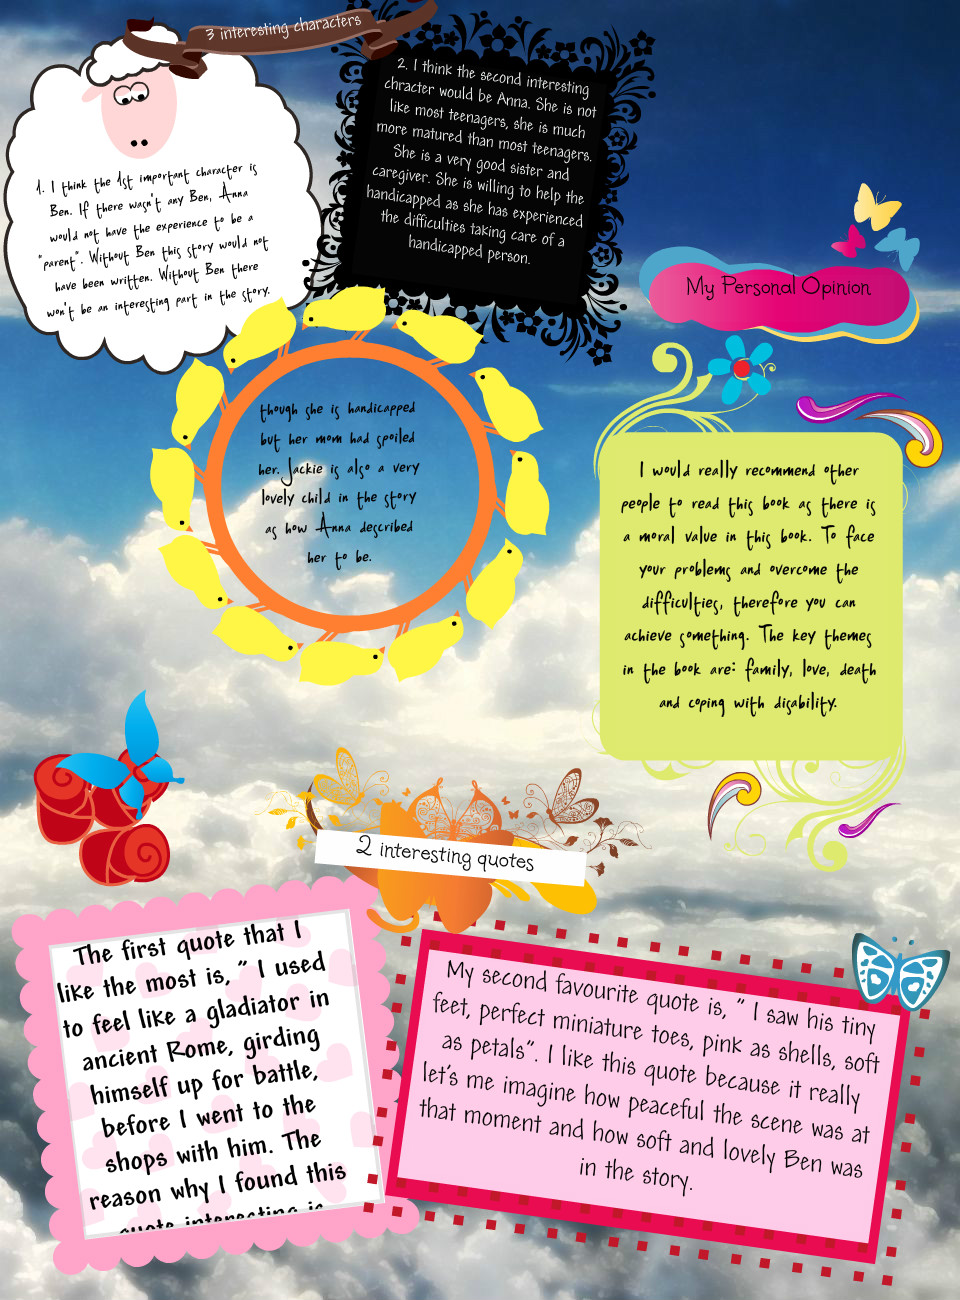 3 interesting characters
1. I think the 1st important character is
Ben. If there wasn't any Ben, Anna
would not have the experience to be a
"parent". Without Ben this story would not
have been written. Without Ben there
won't be an interesting part in the story.
2. I think the second interesting
chracter would be Anna. She is not
like most teenagers, she is much
more matured than most teenagers.
She is a very good sister and
caregiver. She is willing to help the
handicapped as she has experienced
the difficulties taking care of a
handicapped person.
though she is handicapped
but her mom had spoiled
her. Jackie is also a very
lovely child in the story
as how Anna described
her to be.
My Personal Opinion
I would really recommend other
people to read this book as there is
a moral value in this book. To face
your problems and overcome the
difficulties, therefore you can
achieve something. The key themes
in the book are: family, love, death
and coping with disability.
2 interesting quotes
The first quote that I
like the most is, " I used
to feel like a gladiator in
ancient Rome, girding
himself up for battle,
before I went to the
shops with him. The
reason why I found this
quote interesting is
My second favourite quote is, " I saw his tiny
feet, perfect miniature toes, pink as shells, soft
as petals". I like this quote because it really
let's me imagine how peaceful the scene was at
that moment and how soft and lovely Ben was
in the story.